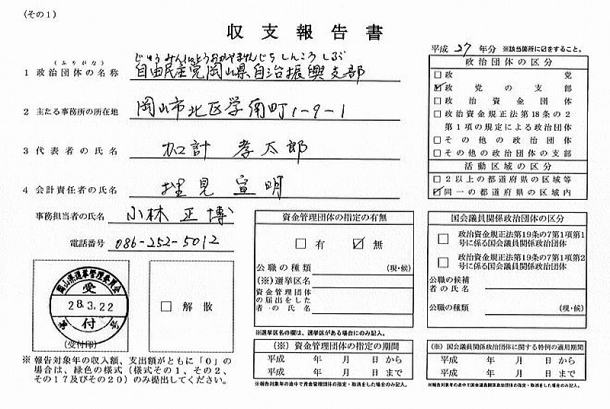 (その1)
収支報告書
平成 27 年分 ※該当箇所に☑をすること。
(ふりがな) じゆうみんしゅとうおかやまけんじちしんこうしぶ
1 政治団体の名称 自由民主党岡山県自治振興支部
2 主たる事務所の所在地 岡山市北区学南町1-9-1
3 代表者の氏名 加計 孝太郎
4 会計責任者の氏名 宣明
事務担当者の氏名 小林 正博
電話番号 086-252-5012
政治団体の区分
□政党
☑政党の支部
□政治資金団体
□政治資金規正法第18条の2第1項の規定による政治団体
□その他の政治団体
□その他の政治団体の支部
活動区域の区分
□2以上の都道府県の区域等
☑同一の都道府県の区域内
岡山県選挙管理委員会
受
28.3.22
付
(受付印)
□ 解散
資金管理団体の指定の有無
□ 有 ☑ 無
公職の種類 (現・候)
(※)選挙区名
資金管理団体の届出をした者の氏名
※選挙区名の欄は、選挙区がある場合にのみ記入。
国会議員関係政治団体の区分
□ 政治資金規正法第19条の7第1項第1号に係る国会議員関係政治団体
□ 政治資金規正法第19条の7第1項第2号に係る国会議員関係政治団体
公職の候補者の氏名
公職の種類 (現・候)
(※) 資金管理団体の指定の期間
平成 年 月 日 から
平成 年 月 日 まで
※報告対象年の途中で資金管理団体の指定・取消をした場合のみ記入。
(※) 国会議員関係政治団体に関する特例の適用期間
平成 年 月 日 から
平成 年 月 日 まで
※ 報告対象年の収入額、支出額がともに「0」の
場合は、緑色の様式(様式その1、その2、
その17及びその20)のみ提出してください。